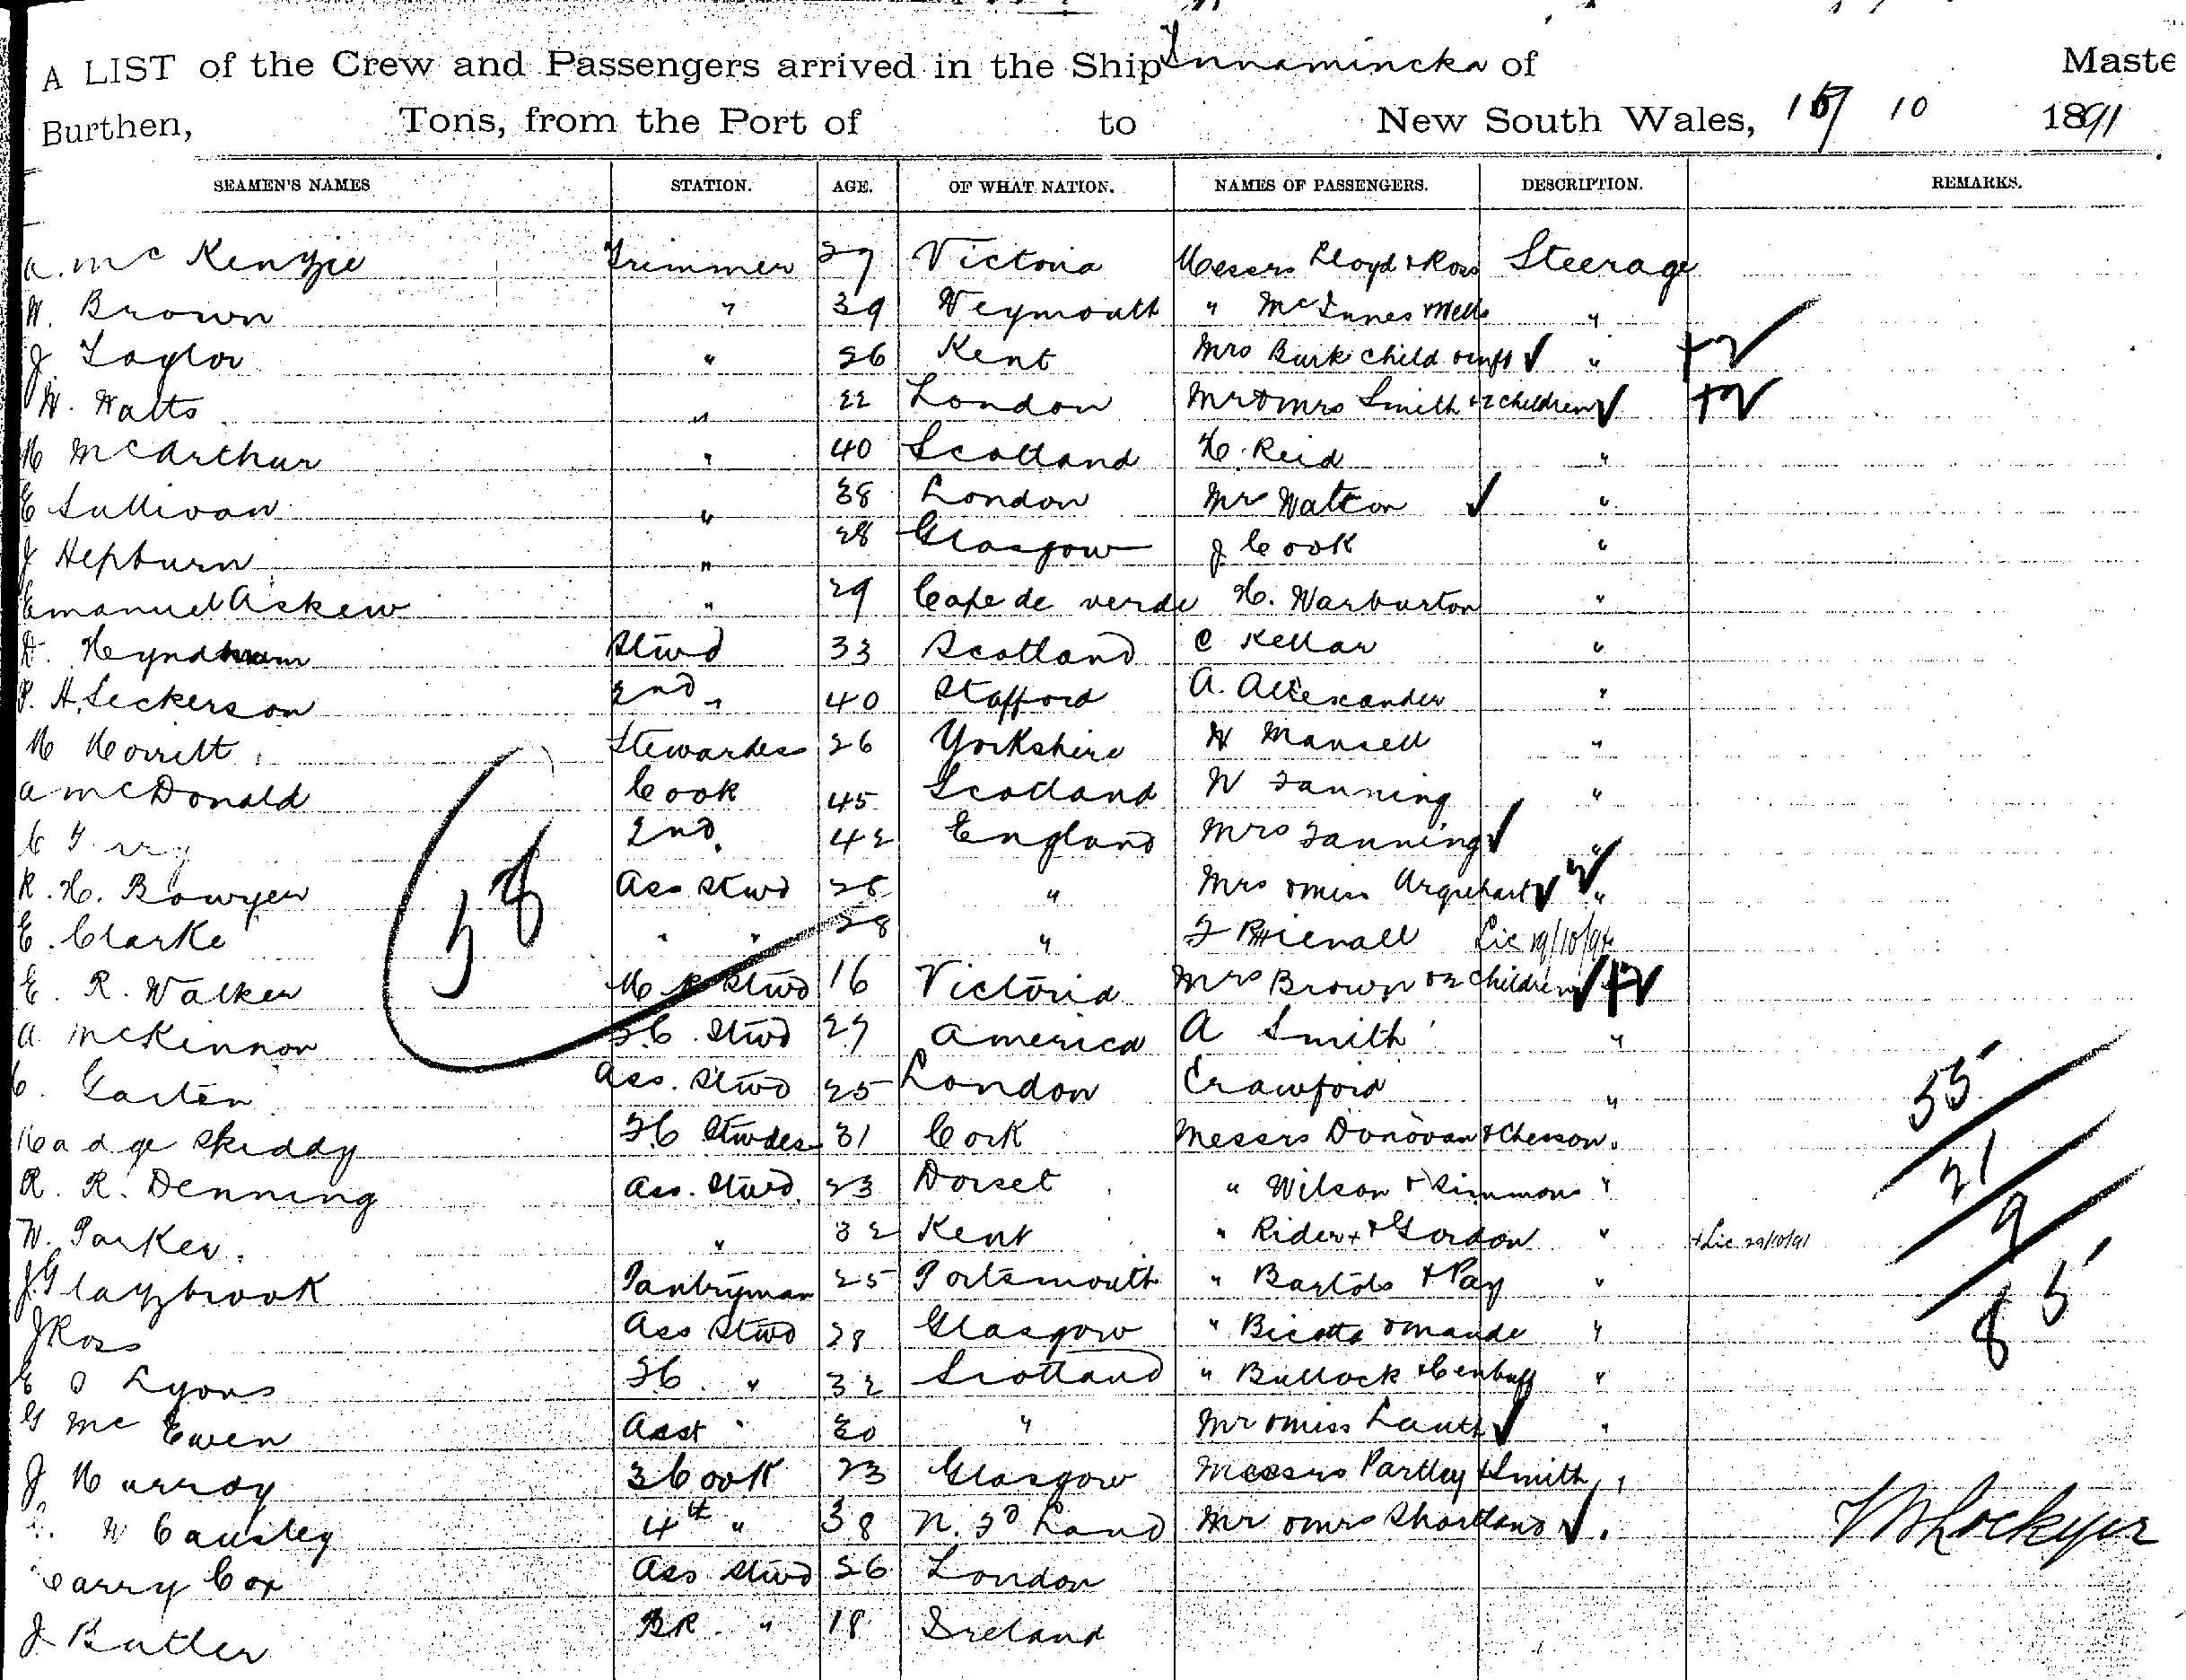 A LIST of the Crew and Passengers arrived in the Ship Innamincka of Maste
Burthen, Tons, from the Port of to New South Wales, 10 1891
SEAMEN'S NAMES STATION. AGE. OF WHAT NATION. NAMES OF PASSENGERS. DESCRIPTION. REMARKS.
A. McKenzie Trimmer 27 Victoria Messrs Lloyd & Ross Steerage
W. Brown " 39 Weymouth " McInnes & Wells "
J Taylor " 26 Kent Mrs Burk child & inft ✓ " +2 ✓
W. Watts " 22 London Mr & Mrs Smith & 2 children ✓ +2 ✓
H McArthur " 40 Scotland H. Reid "
E Sullivan " 38 London Mr Watson ✓ "
J Hepburn " 28 Glasgow J Cook "
Emanuel Askew " 29 Cape de verde H. Warburton "
Stwd 33 Scotland C Kellar "
P. H. Seckerson 2nd " 40 Stafford A. Allexander "
M Morritt Stewardess 26 Yorkshire W Mansell "
A McDonald Cook 45 Scotland W Fanning "
2nd 42 England Mrs Fanning ✓ "
R. H. Bowyer Ass Stwd 28 " Mrs & Miss Urquehart ✓ 2 ✓ "
E. Clarke " " 28 " F Lic 19/10/91
E. R. Walker M R Stwd 16 Victoria Mrs Brown & 2 children ✓ +2 ✓
A McKinnon 3C. Stwd 27 America A Smith "
C. Garten Ass. Stwd 25 London Crawford "
Madge Skiddy 3C Stwdess 31 Cork Messrs Donovan & Chesson "
R. R. Denning Ass. Stwd. 23 Dorset " Wilson & Simmons "
W. Parker " 32 Kent " Rider + & Gordon " + Lic 29/10/91
J Glazbrook Pantryman 25 Portsmouth " Bartols & Pay "
J Ross Ass Stwd 28 Glasgow " "
E O Lyons 3C. " 32 Scotland " Bullock & "
G McEwen Asst " 20 " Mr & Miss Lauth ✓ "
J Murray 3 Cook 23 Glasgow Messrs Partley & Smith "
W Causley 4th " 38 N. So Land Mr & Mrs Shortland ✓ "
Harry Cox Ass Stwd 26 London
J Butler BR " 18 Ireland
58
55
21
9
85
Lockyer